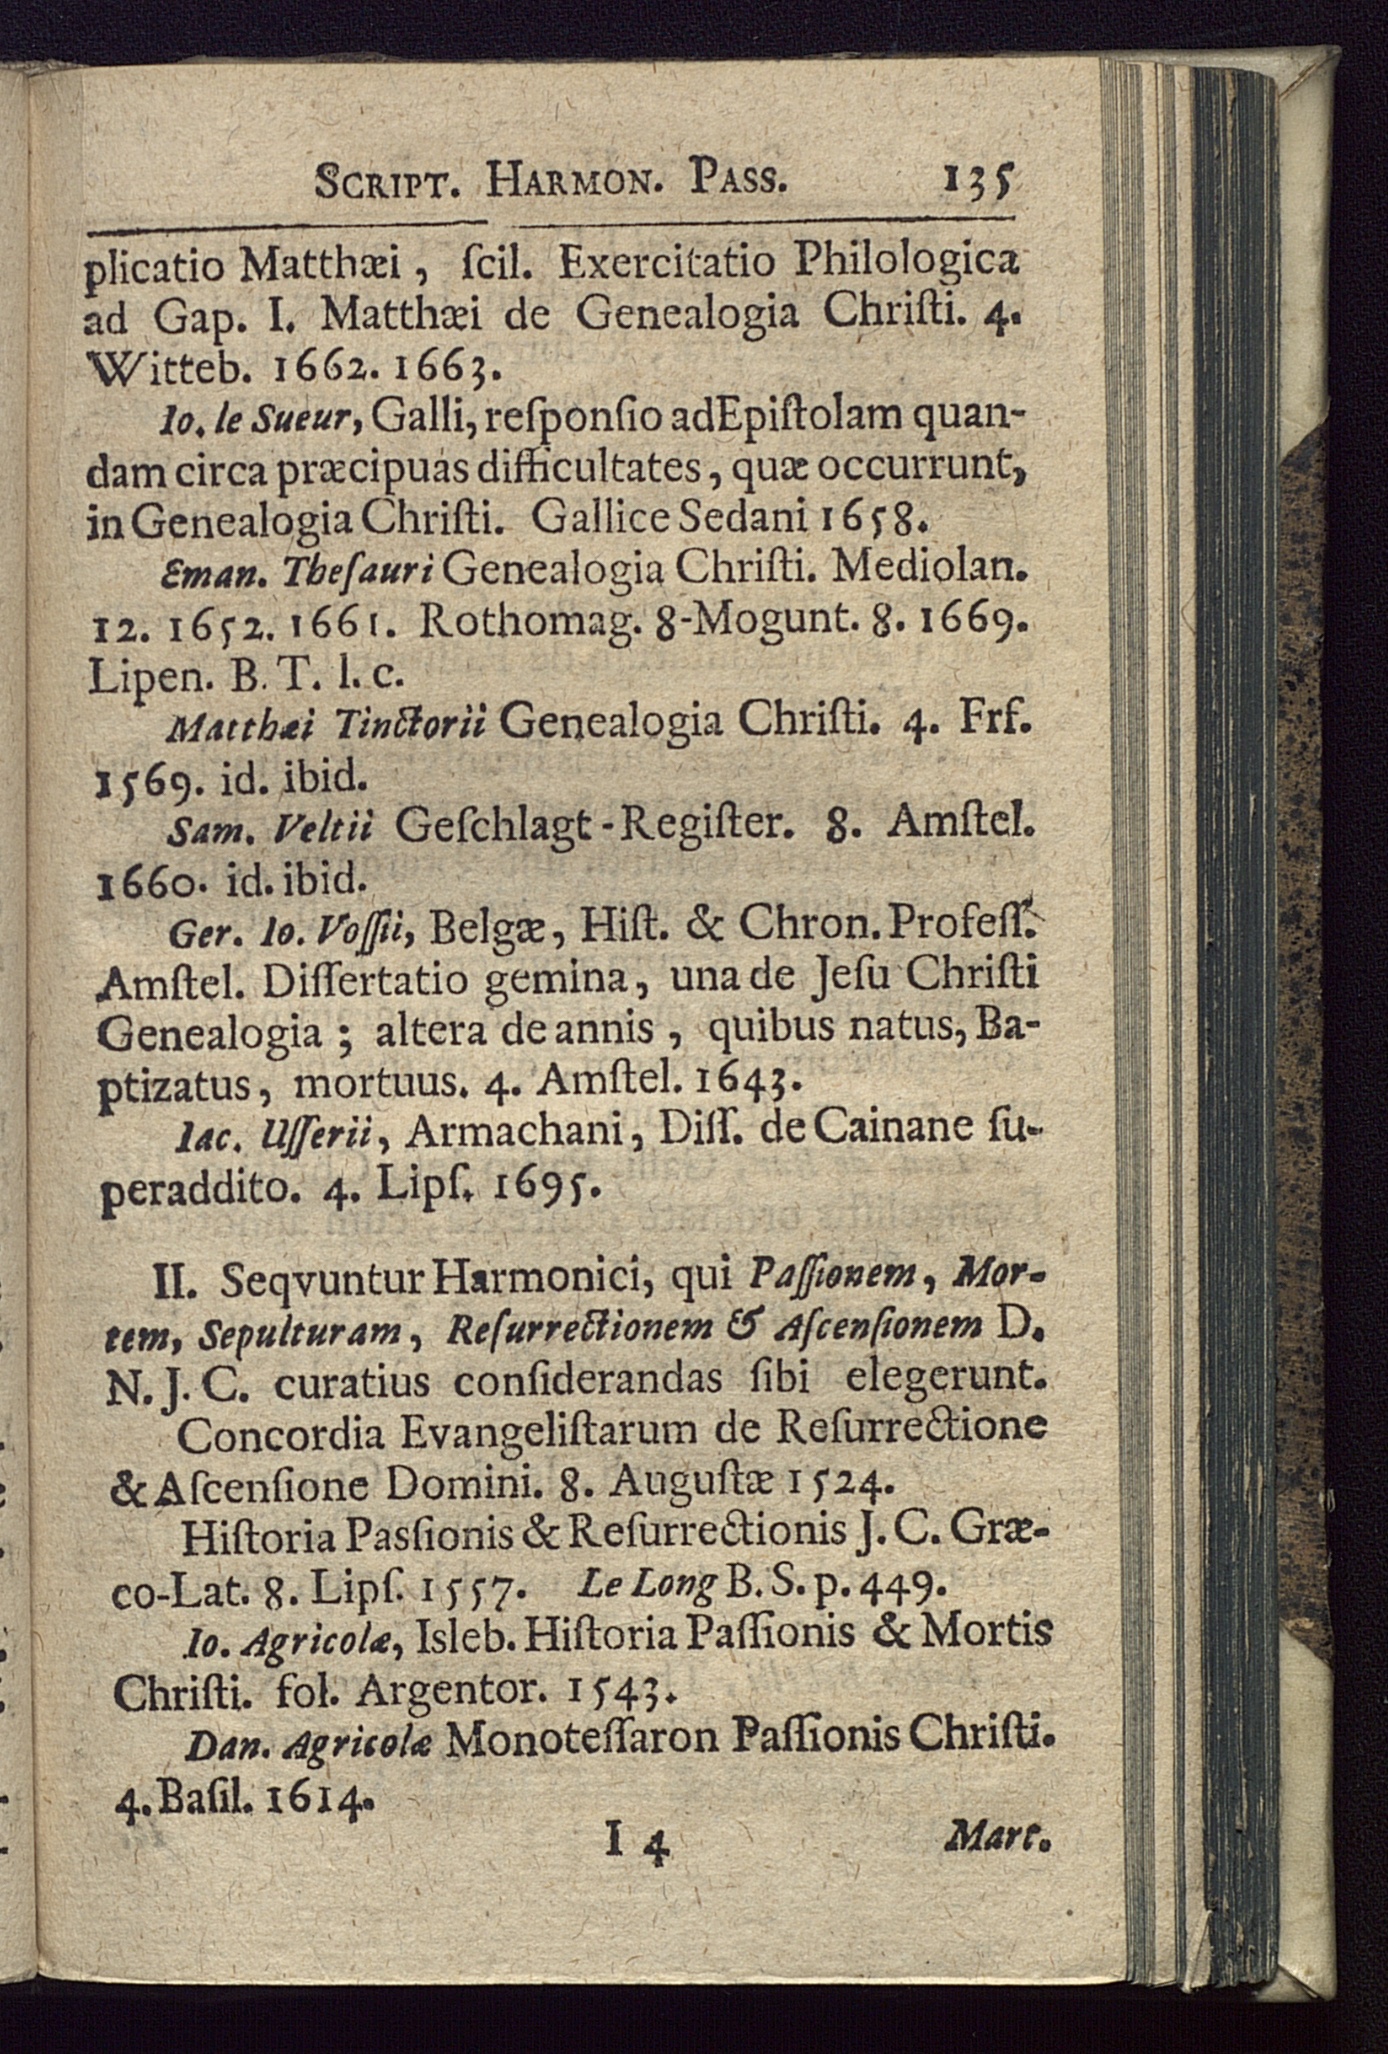 SCRIPT. HARMON. PASS. 135
plicatio Matthæi, ſcil. Exercitatio Philologica
ad Gap. I. Matthæi de Genealogia Chriſti. 4.
Witteb. 1662. 1663.
Io. le Sueur, Galli, reſponſio adEpiſtolam quan-
dam circa præcipuas difficultates, quæ occurrunt,
in Genealogia Chriſti. Gallice Sedani 1658.
Eman. Theſauri Genealogia Chriſti. Mediolan.
12. 1652. 1661. Rothomag. 8-Mogunt. 8. 1669.
Lipen. B. T. l. c.
Matthæi Tinctorii Genealogia Chriſti. 4. Frf.
1569. id. ibid.
Sam. Veltii Geſchlagt-Regiſter. 8. Amſtel.
1660. id. ibid.
Ger. Io. Voſſii, Belgæ, Hiſt. & Chron. Profeſſ.
Amſtel. Diſſertatio gemina, una de Jeſu Chriſti
Genealogia; altera de annis, quibus natus, Ba-
ptizatus, mortuus. 4. Amſtel. 1643.
Iac. Uſſerii, Armachani, Diſſ. de Cainane ſu-
peraddito. 4. Lipſ. 1695.
II. Seqvuntur Harmonici, qui Paſſionem, Mor-
tem, Sepulturam, Reſurrectionem & Aſcenſionem D.
N. J. C. curatius conſiderandas ſibi elegerunt.
Concordia Evangeliſtarum de Reſurrectione
& Aſcenſione Domini. 8. Auguſtæ 1524.
Hiſtoria Pasſionis & Reſurrectionis J. C. Græ-
co-Lat. 8. Lipſ. 1557. Le Long B. S. p. 449.
Io. Agricolæ, Isleb. Hiſtoria Paſſionis & Mortis
Chriſti. fol. Argentor. 1543.
Dan. Agricolæ Monoteſſaron Paſſionis Chriſti.
4. Baſil. 1614.
I 4 Mart.